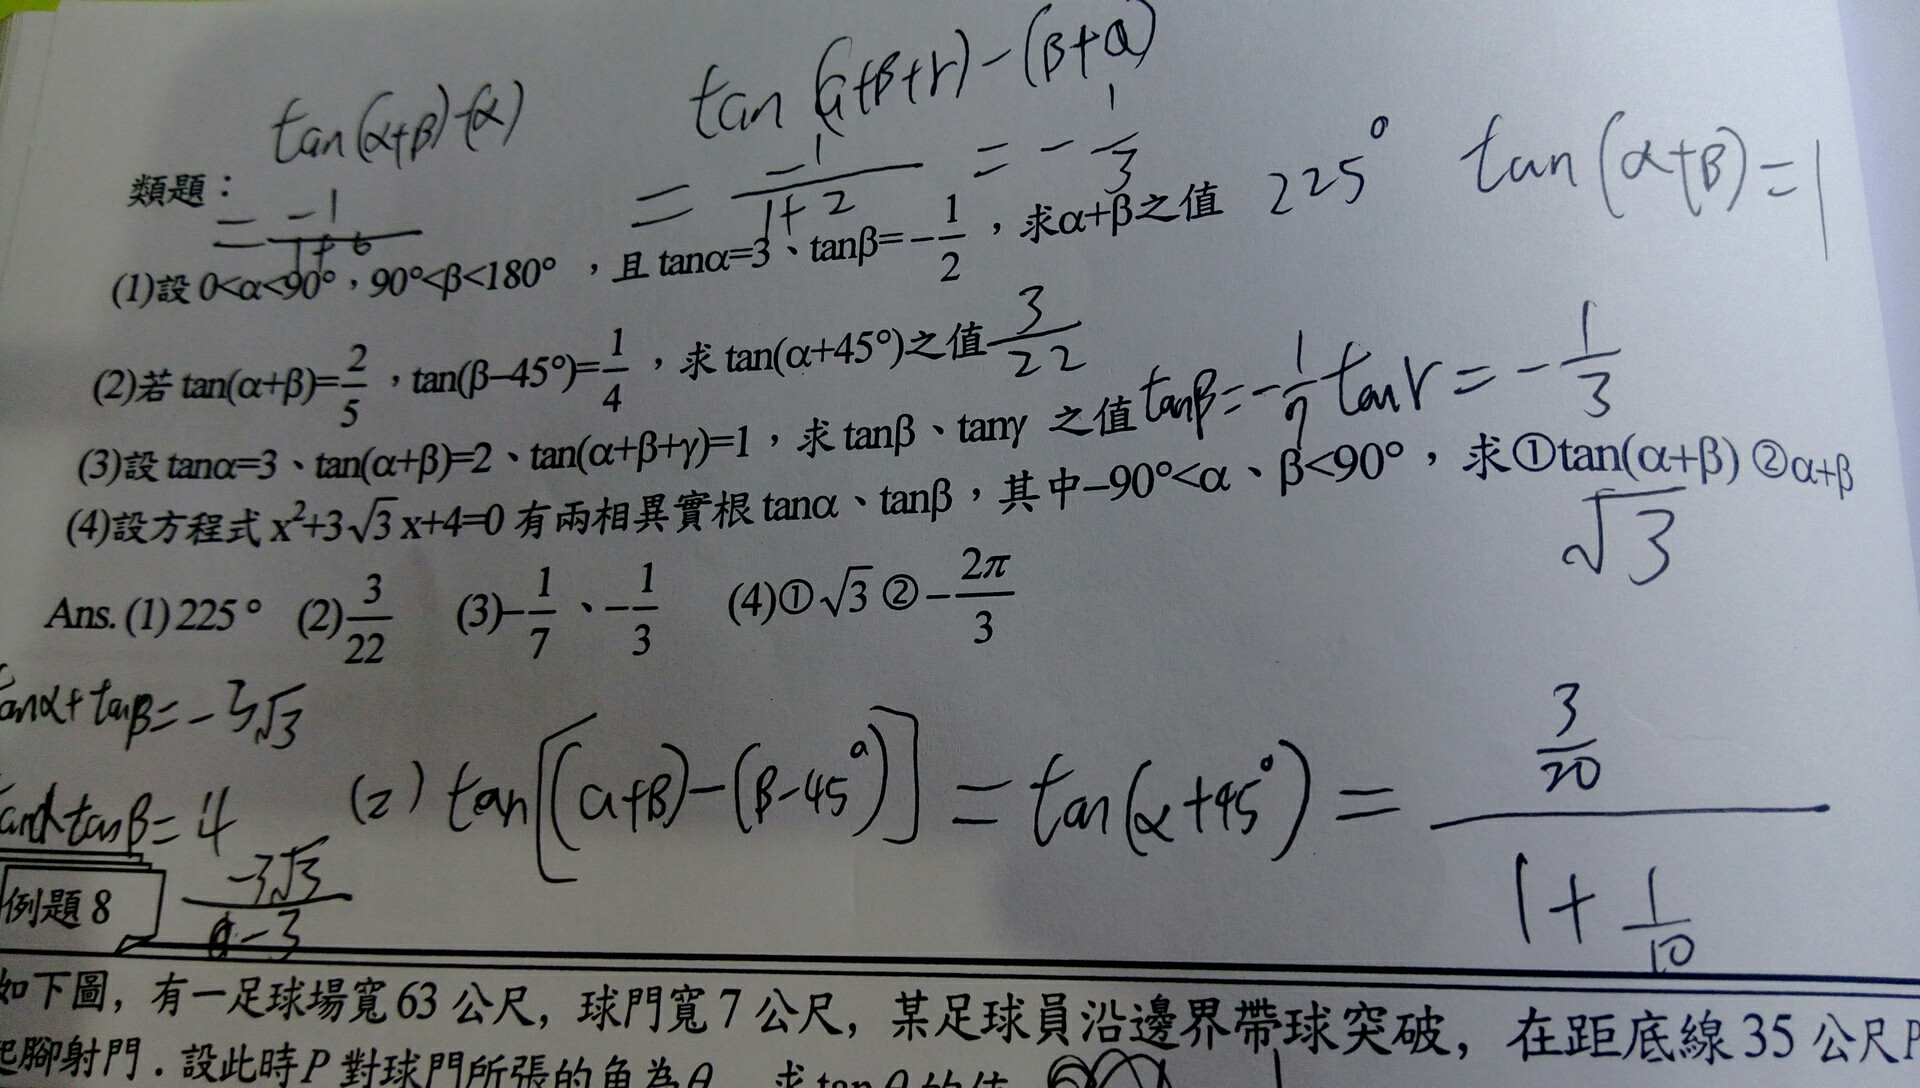 tan(α+β)-(α)
tan(α+β+r)-(β+α)
= -1/(1+2) = -1/3
225° tan(α+β)=1
類題：
= -1/(1+6)
(1)設 0<α<90°，90°<β<180° ，且 tanα=3、tanβ=-1/2 ，求α+β之值
(2)若 tan(α+β)=2/5 ，tan(β-45°)=1/4 ，求 tan(α+45°)之值 3/22
(3)設 tanα=3、tan(α+β)=2、tan(α+β+γ)=1，求 tanβ、tanγ 之值 tanβ=-1/7 tanr=-1/3
(4)設方程式 x²+3√3x+4=0 有兩相異實根 tanα、tanβ，其中-90°<α、β<90°，求①tan(α+β) ②α+β
√3
Ans. (1) 225° (2) 3/22 (3)-1/7、-1/3 (4)①√3 ②-2π/3
anα+tanβ=-3√3
tanβ=4
(2) tan[(α+β)-(β-45°)] = tan(α+45°) = (3/20)/(1+1/10)
-3√3
-3
例題 8
如下圖，有一足球場寬 63 公尺，球門寬 7 公尺，某足球員沿邊界帶球突破，在距底線 35 公尺 P
起腳射門．設此時 P 對球門所張的角為θ 求 tanθ的值